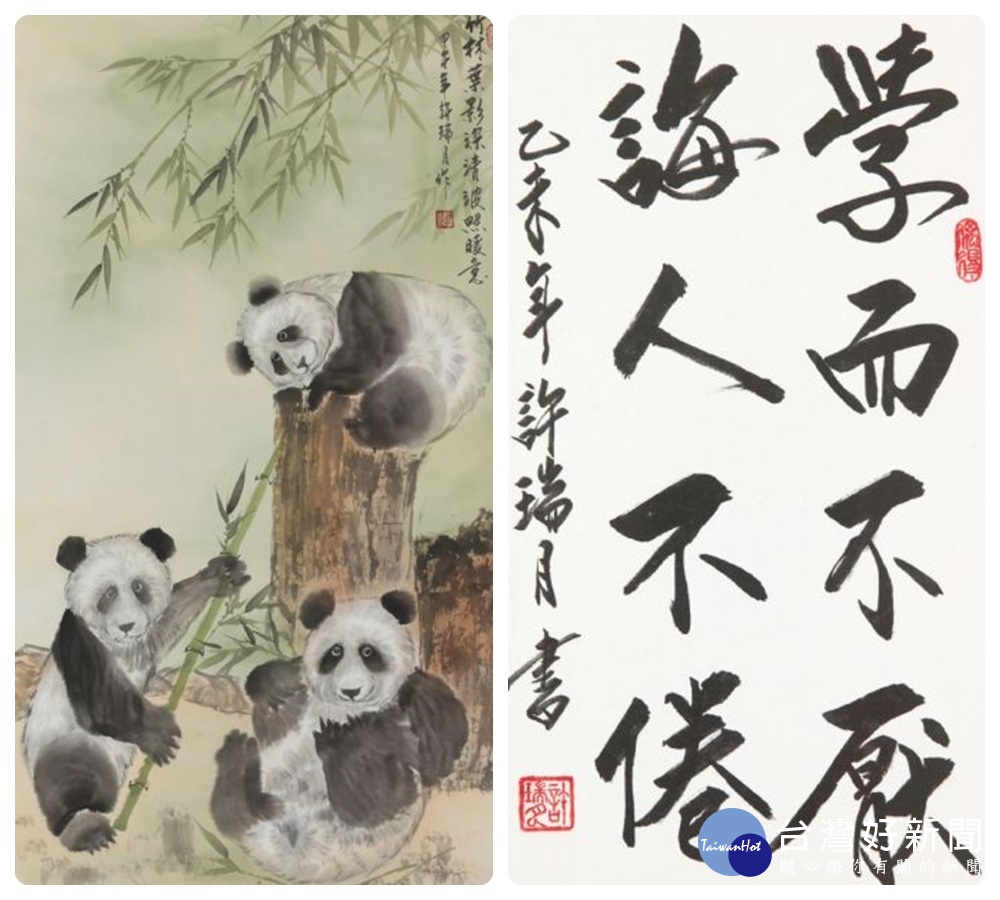 竹林葉影深清波照暖意
甲午年許瑞月作
學而不厭
誨人不倦
乙未年許瑞月書
許瑞月
TaiwanHot
台灣好新聞
關心跟你有關的新聞